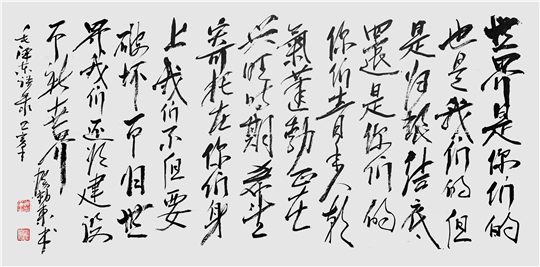 世界是你们的
也是我们的但
是归根结底
還是你们的
你们青年人朝
氣蓬勃正在
兴旺时期希望
寄托在你们身
上我们不但要
破坏一个旧世
界我们还须建设
一个新世界
毛泽东语录
书